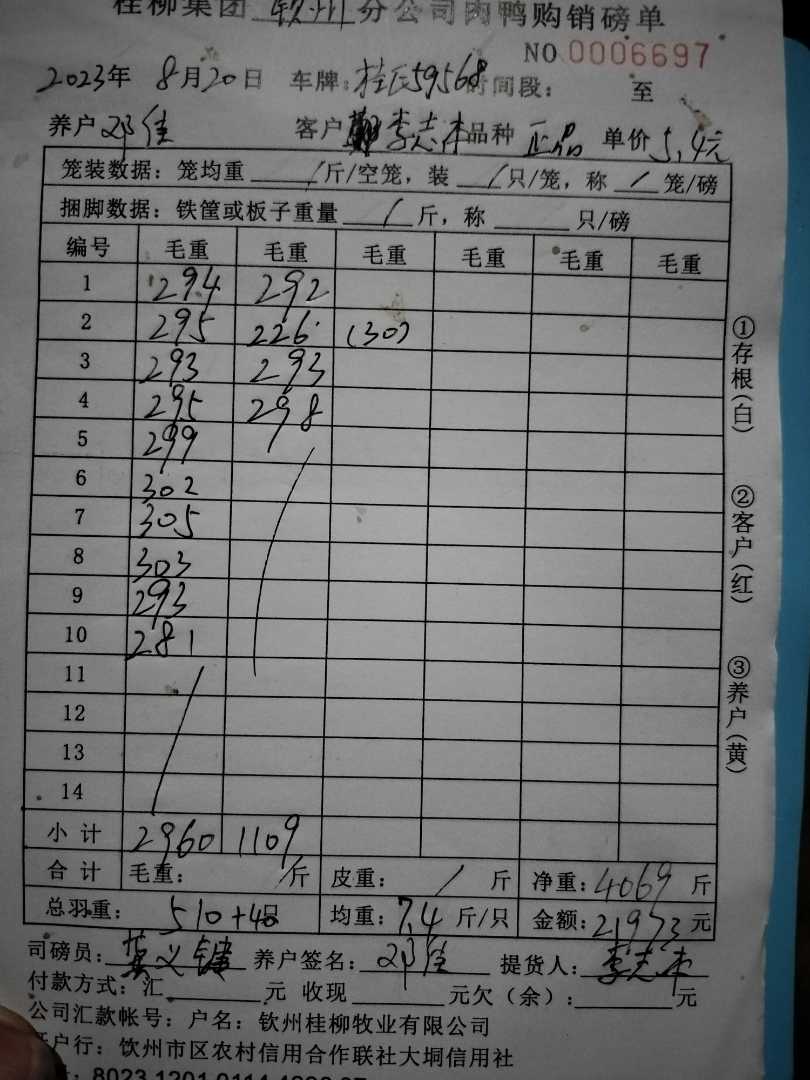 桂柳集团 钦州 分公司肉鸭购销磅单
NO 0006697
2023年 8月20日 车牌：桂氏59568 时间段： 至
养户 邓佳 客户 李志本 品种 正品 单价 5.4元
笼装数据：笼均重 / 斤/空笼，装 / 只/笼，称 / 笼/磅
捆脚数据：铁筐或板子重量 / 斤，称 只/磅
编号 毛重 毛重 毛重 毛重 毛重 毛重
1 294 292
2 295 226 (30)
3 293 293
4 295 298
5 299
6 302
7 305
8 303
9 293
10 281
11
12
13
14
小计 2960 1109
合计 毛重： / 斤 皮重： / 斤 净重：4069 斤
总羽重： 510+40只 均重：7.4 斤/只 金额：21973 元
司磅员： 养户签名：邓佳 提货人：李志本
付款方式：汇 元 收现 元欠（余）： 元
公司汇款帐号：户名：钦州桂柳牧业有限公司
开户行：饮州市区农村信用合作联社大垌信用社
①存根(白)
②客户(红)
③养户(黄)